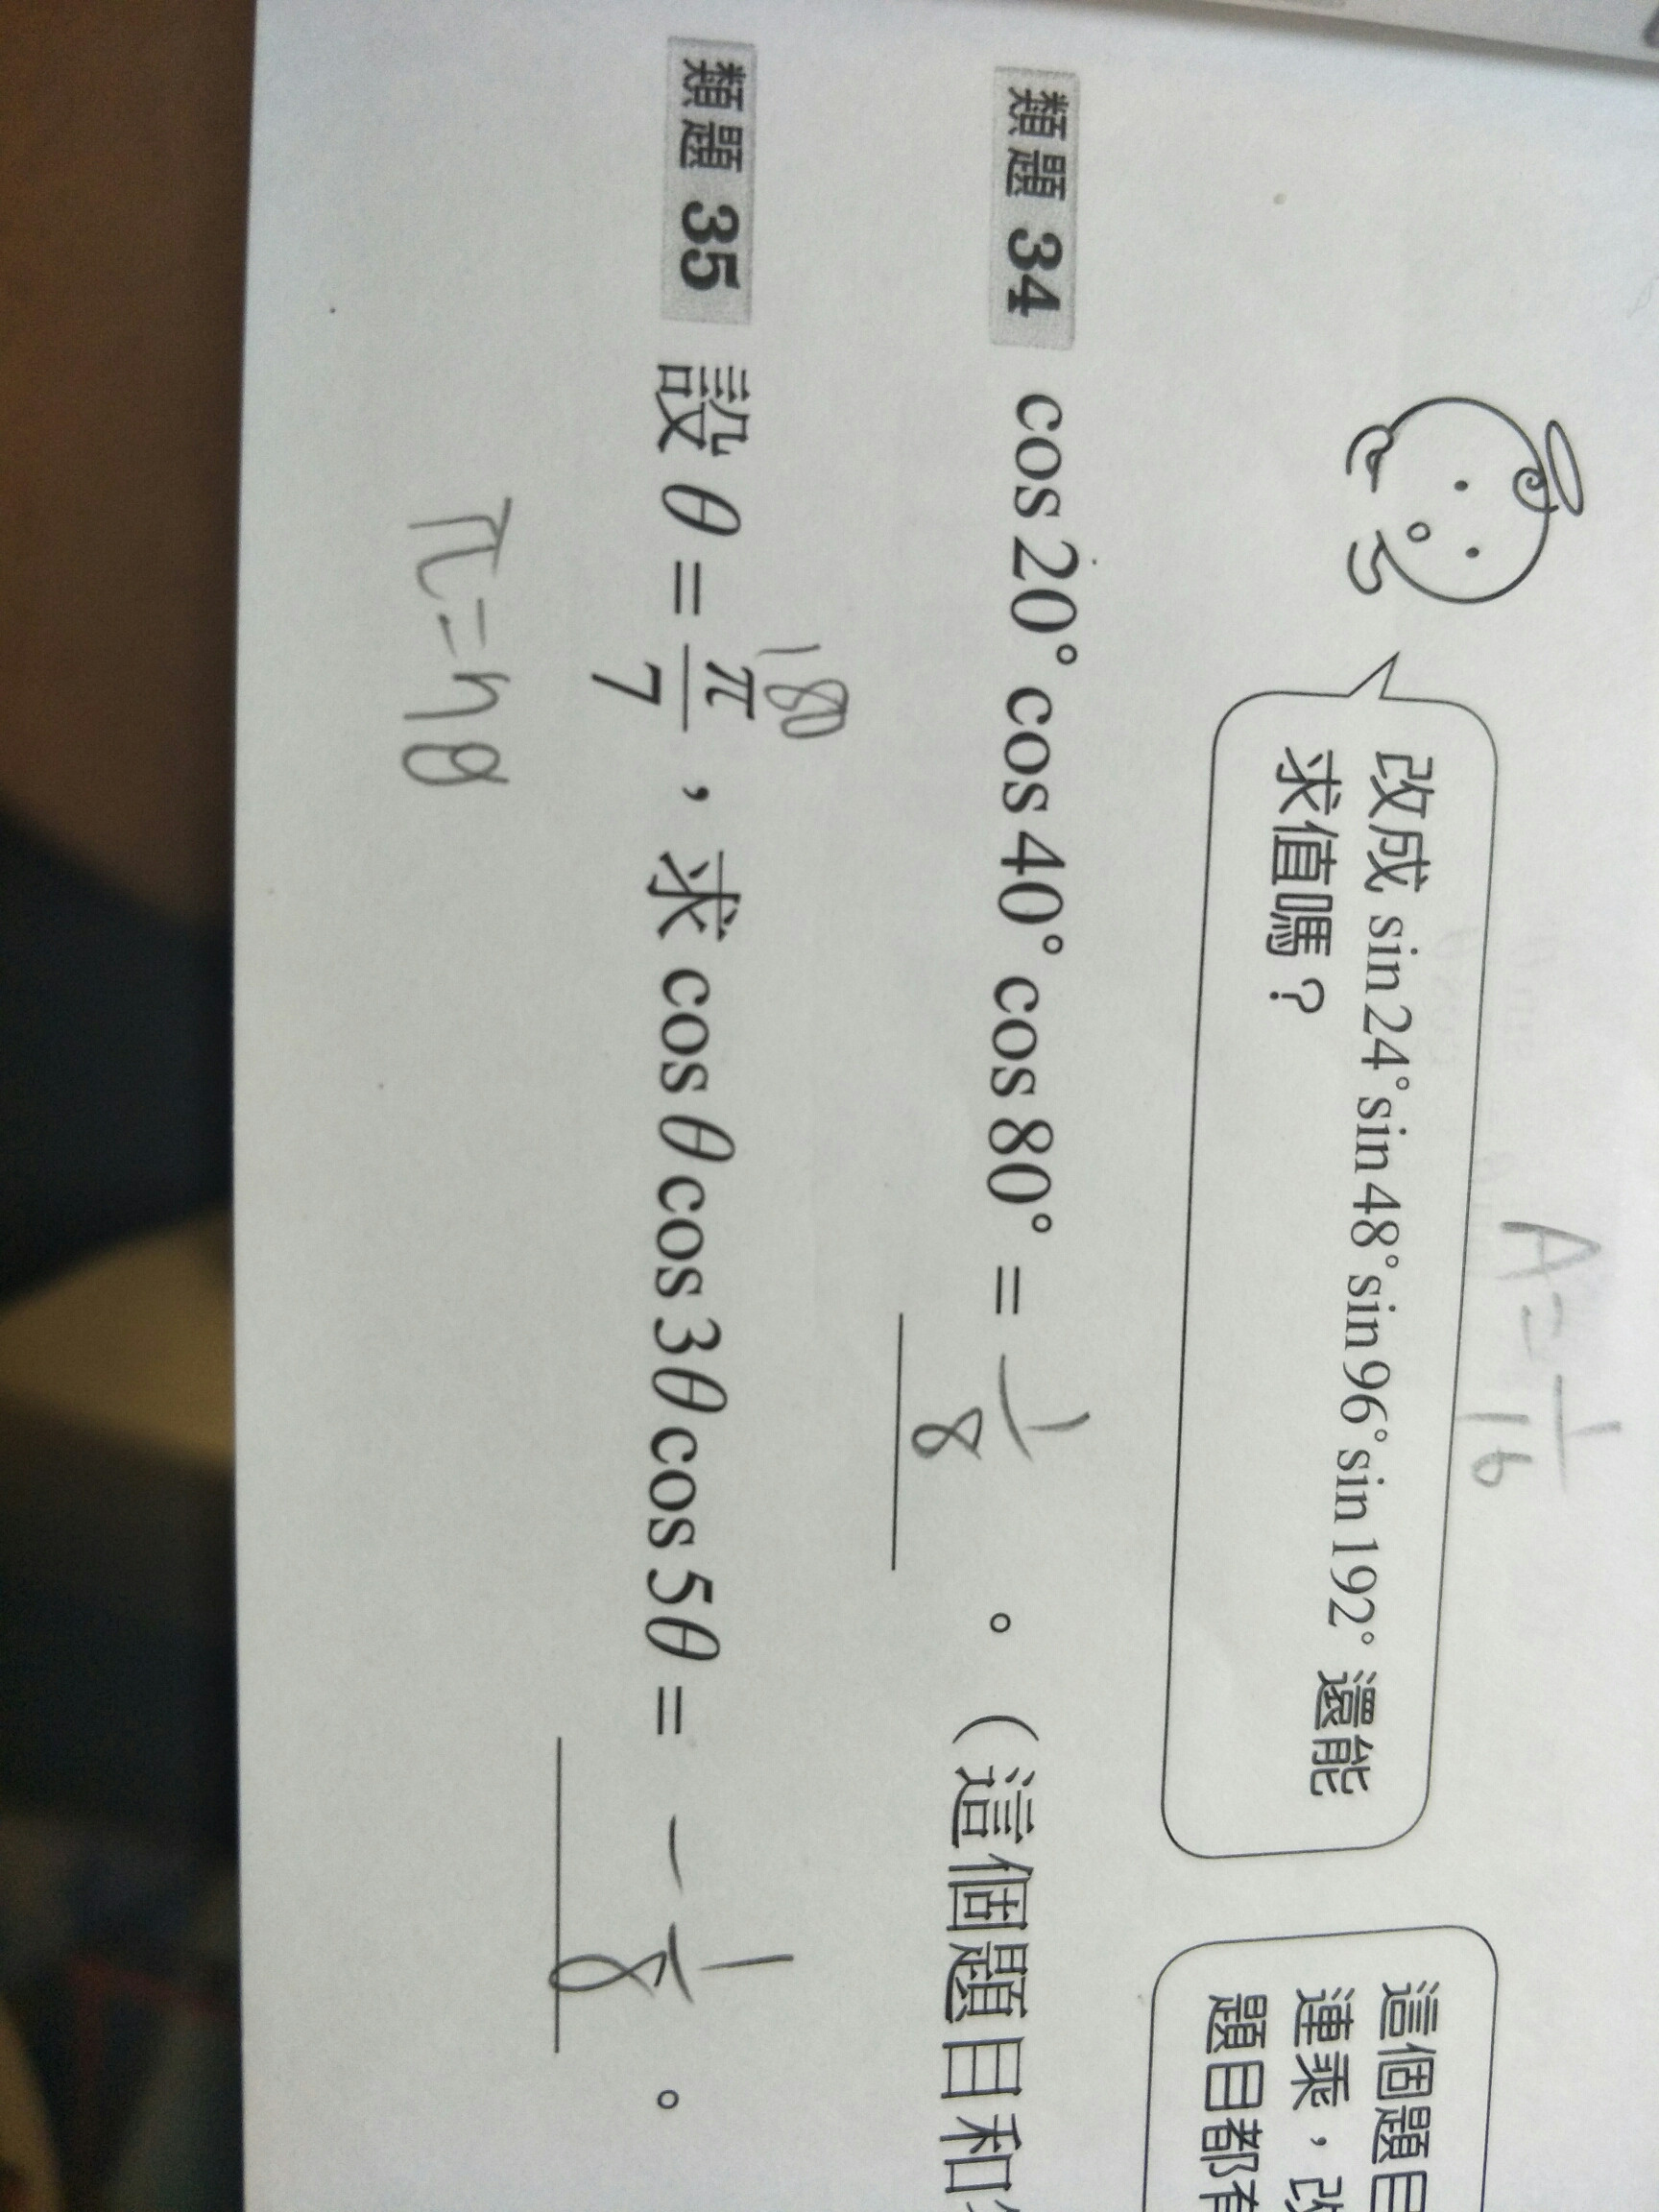 A=1/16
改成 sin24°sin48°sin96°sin192° 還能
求值嗎？
這個題目
連乘，改
題目都有
類題 34 cos20°cos40°cos80°= 1/8 。（這個題目和
180
類題 35 設θ=π/7，求cosθcos3θcos5θ= -1/8 。
π=7θ